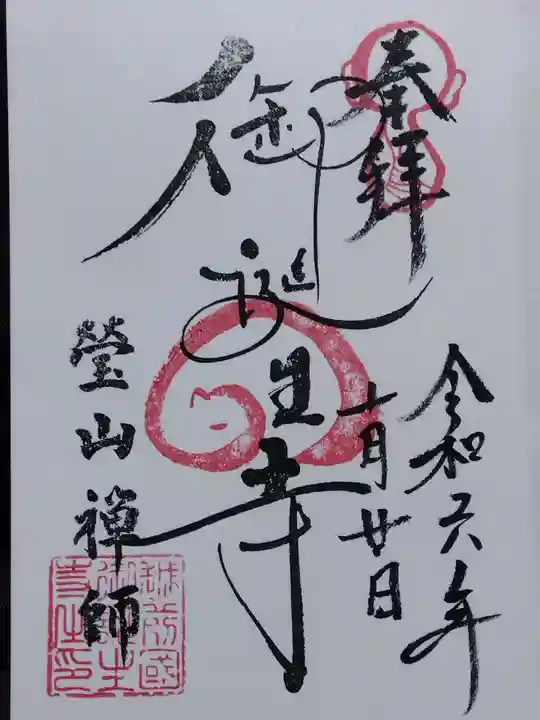 奉拜
令和六年
十月廿日
御誕生寺
瑩山禅師
越前國
御誕生
寺住印